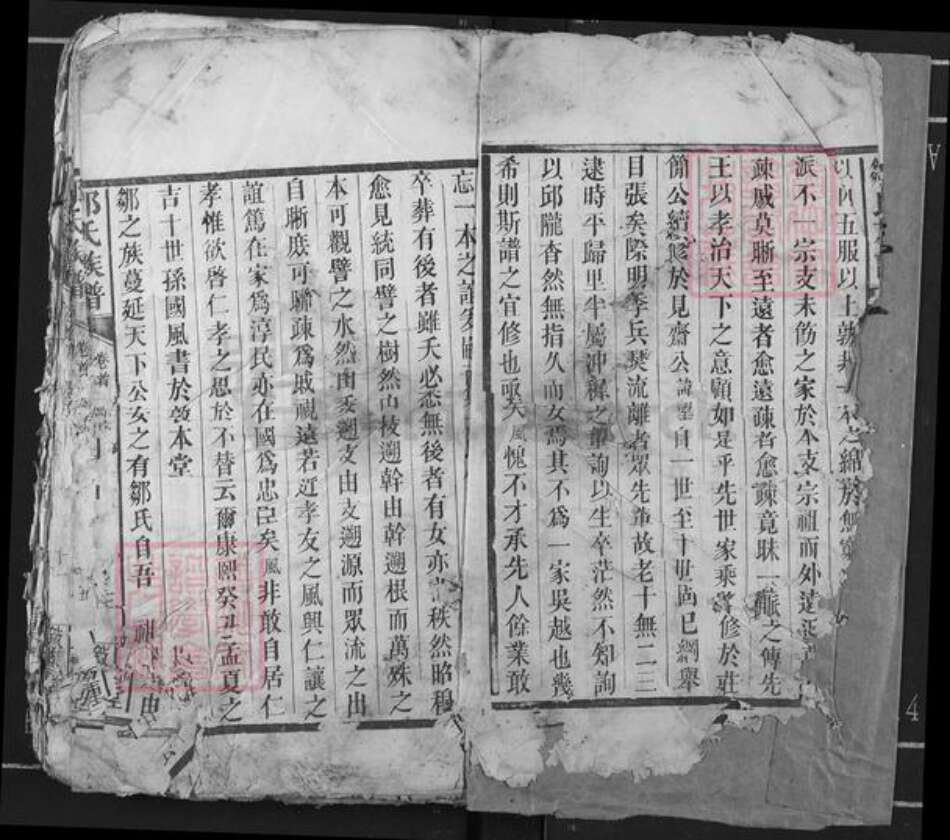 以內五服以上敦
派不 宗支未飭之家於本支宗祖而外遠
疎戚莫晰至遠者愈遠疎者愈疎竟昧一脈之傳先
王以孝治天下之意顧如是乎先世家乘 修於莊
簡公續修於見齋公諱 自一世至十世固已綱舉
目張矣際明季兵燹流離者眾先輩故老十無二三
逮時平歸里半屬沖穉之輩詢以生卒茫然不知詢
以邱隴杳然無指久而安焉其不為一家吳越也幾
希則斯譜之宜修也亟矣風愧不才承先人餘業敢
忘一本之誼
卒葬有後者雖夭必悉無後者有女亦 秩然昭穆
愈見統同譬之樹然由枝遡幹由幹遡根而萬殊之
本可觀譬之水然由委遡支由支遡源而眾流之出
自晰庶可聯疎爲戚視遠若近孝友之風興仁讓之
誼篤在家爲淳民亦在國爲忠臣矣風非敢自居仁
孝惟欲啓仁孝之思於不替云爾康熙癸丑孟夏之
吉十世孫國風書於敦本堂
鄒之族蔓延天下公安之有鄒氏自吾 祖 由
氏族譜
卷首